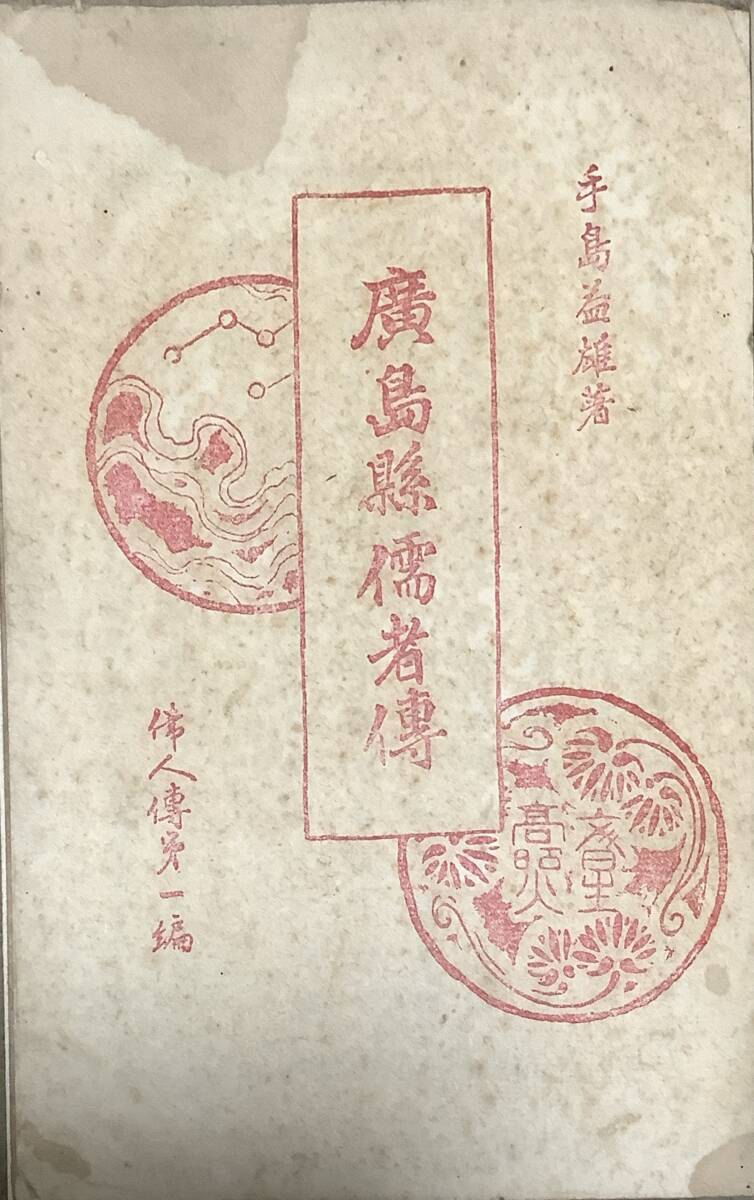 手島益雄著
廣島縣儒者傳
偉人傳第一編
文星
高照